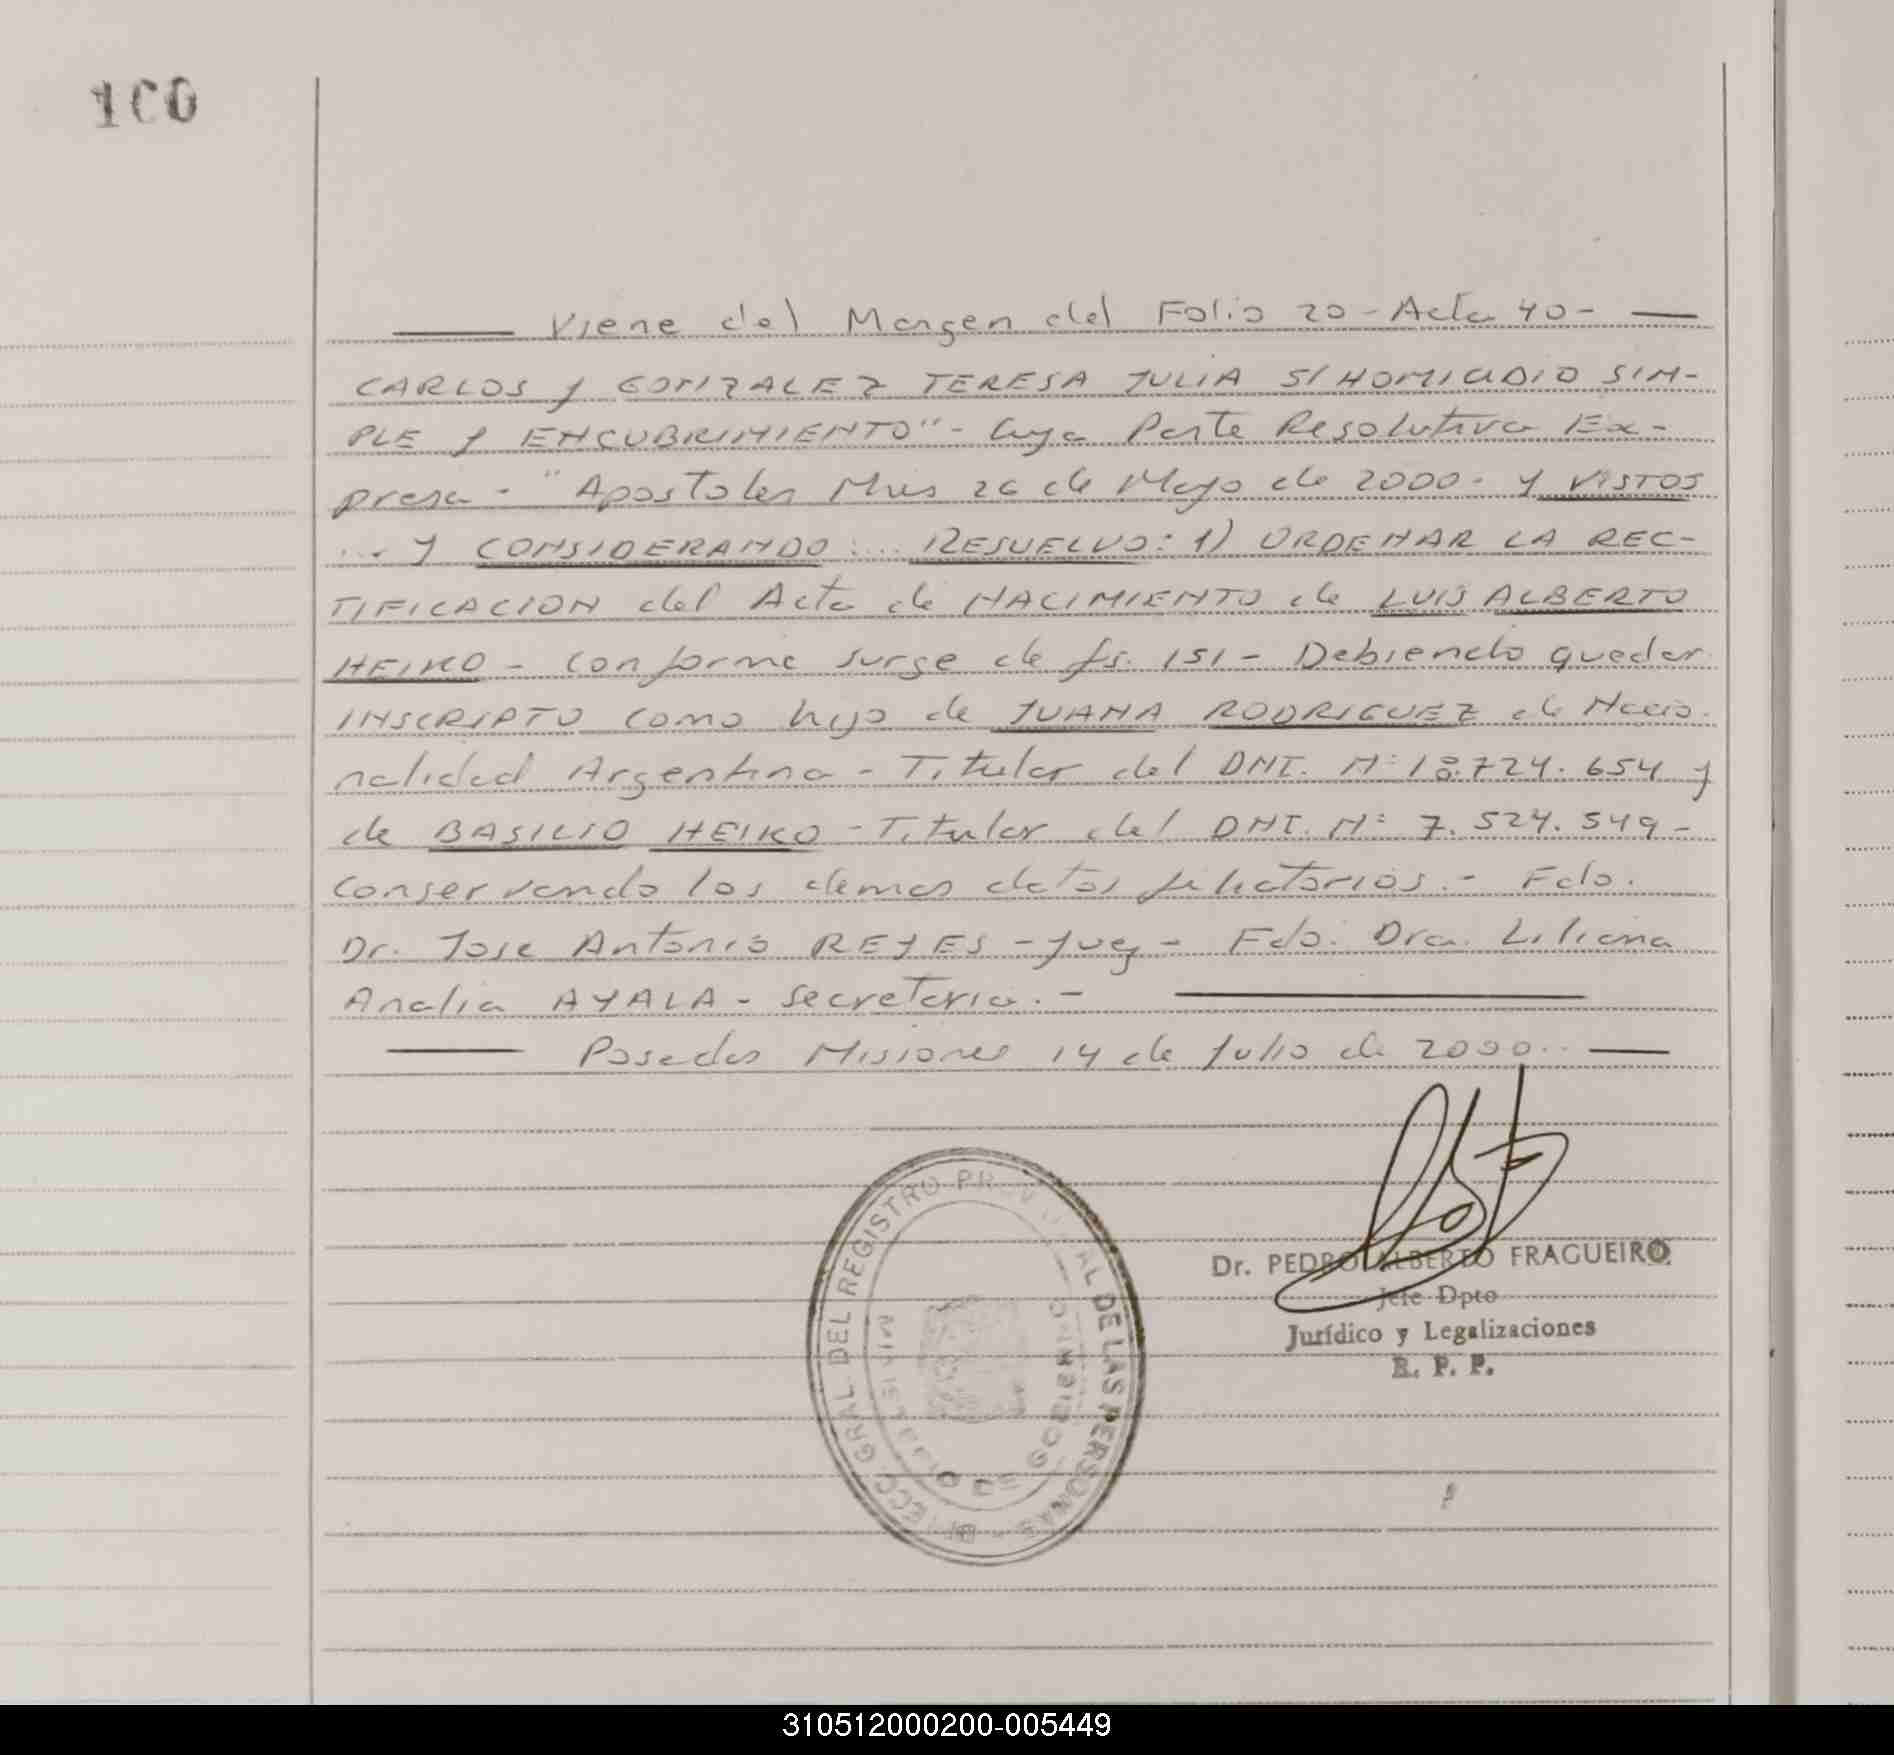 100
Viene del Margen del Folio 20 - Acta 40 -
CARLOS y GONZALEZ TERESA JULIA S/HOMICIDIO SIM-
PLE y ENCUBRIMIENTO" - Cuya Parte Resolutiva Ex-
presa - "Apostoles Mnes 26 de Mayo de 2000. y VISTOS
... y CONSIDERANDO: ... RESUELVO: 1) ORDENAR LA REC-
TIFICACION del Acta de NACIMIENTO de LUIS ALBERTO
HEIKO - conforme surge de fs. 151 - Debiendo quedar
INSCRIPTO como hijo de JUANA RODRIGUEZ de Nacio-
nalidad Argentina - Titular del DNI. Nº 18.724.654 y
de BASILIO HEIKO - Titular del DNI. Nº 7.524.549 -
Conservando los demas datos filiatorios. - Fdo.
Dr. Jose Antonio REYES - Juez - Fdo. Dra. Liliana
Analia AYALA - Secretaria. -
Posadas Misiones 14 de Julio de 2000.
DIRECC. GRAL. DEL REGISTRO PROVINCIAL DE LAS PERSONAS
MINISTERIO DE GOBIERNO
Dr. PEDRO ALBERTO FRAGUEIRO
Jefe Dpto
Jurídico y Legalizaciones
R. P. P.
310512000200-005449